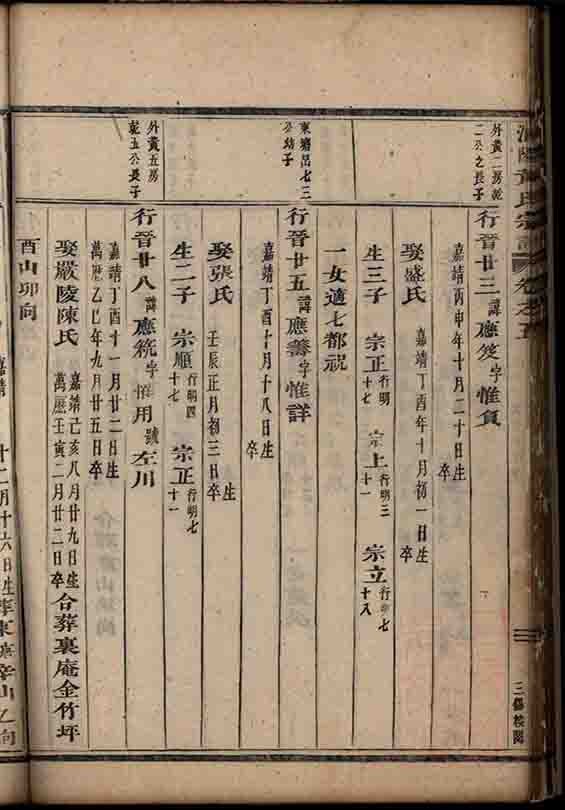 黄氏宗譜 卷之五
三傷楼閣
外黄二房乾
二公之長子
行晉廿三諱應筊字惟貟
嘉靖丙申年十月二十日生
卒
娶盛氏 嘉靖丁酉年十月初一日生
卒
生三子 宗正行明十七 宗上行明三十一 宗立行明七十八
一女適七都祝
東塘呂七三
公幼子
行晉廿五諱應籌字惟詳
嘉靖丁酉十月十八日生
卒
娶張氏 壬辰正月初三日生
卒
生二子 宗順行明四十七 宗正行明七十一
外黄五房
乾五公長子
行晉廿八諱應統字惟用號左川
嘉靖丁酉十一月廿二日生
萬歷乙巳年九月廿五日卒
娶嚴陵陳氏 嘉靖己亥八月廿九日生
萬歷壬寅二月廿二日卒
合葬裏庵金竹坪
酉山卯向
嘉靖
十二月十六日生
山乙向